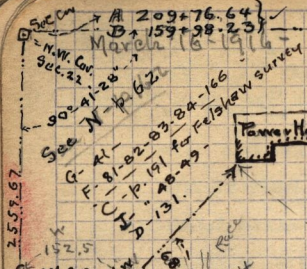 Sec Cor
A 209+76.64
B 159+98.23
March 16-1916-
N.W. Cor.
Sec. 22.
90°-41-28
See N-p. 62
G-41-
F-81-82-83-84-166
C-p. 191 for Felshaw survey
" 48-49-
D-131.
Power H
2559.67
152.5
Race
68